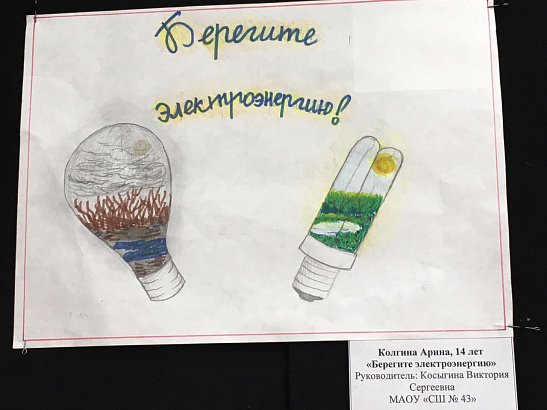 Берегите
электроэнергию!
Колгина Арина, 14 лет
«Берегите электроэнергию»
Руководитель: Косыгина Виктория
Сергеевна
МАОУ «СШ № 43»